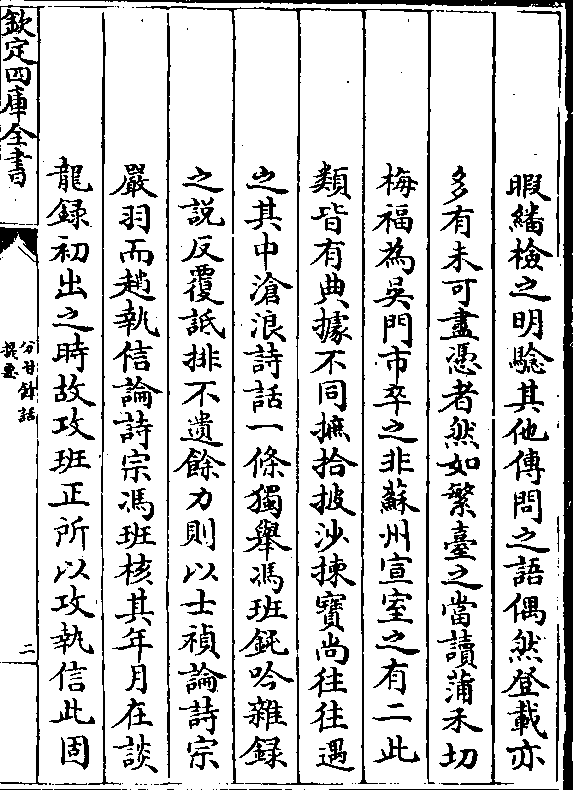 暇繙檢之明驗其他傳聞之語偶然登載亦
多有未可盡憑者然如繁臺之當讀蒲禾切
梅福為吳門市卒之非蘇州宣室之有二此
類皆有典據不同摭拾披沙揀寶尚往往遇
之其中滄浪詩話一條獨舉馮班鈍吟雜録
之説反覆詆排不遺餘力則以士禎論詩宗
嚴羽而趙執信論詩宗馮班核其年月在談
龍録初出之時故攻班正所以攻執信此固
欽定四庫全書
分甘餘話
提要
二